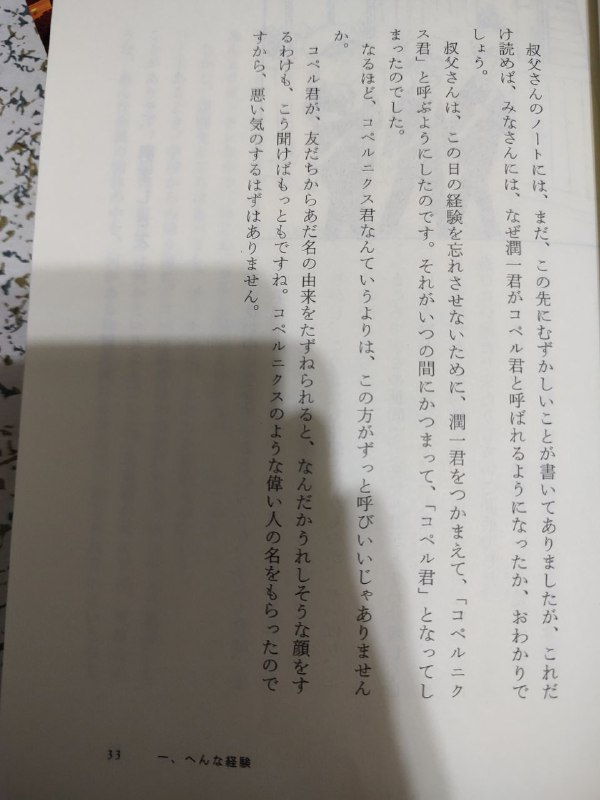 叔父さんのノートには、まだ、この先にむずかしいことが書いてありましたが、これだ
け読めば、みなさんには、なぜ潤一君がコペル君と呼ばれるようになったか、おわかりで
しょう。
叔父さんは、この日の経験を忘れさせないために、潤一君をつかまえて、「コペルニク
ス君」と呼ぶようにしたのです。それがいつの間にかつまって、「コペル君」となってし
まったのでした。
なるほど、コペルニクス君なんていうよりは、この方がずっと呼びいいじゃありません
か。
コペル君が、友だちからあだ名の由来をたずねられると、なんだかうれしそうな顔をす
るわけも、こう聞けばもっともですね。コペルニクスのような偉い人の名をもらったので
すから、悪い気のするはずはありません。
33 一、へんな経験